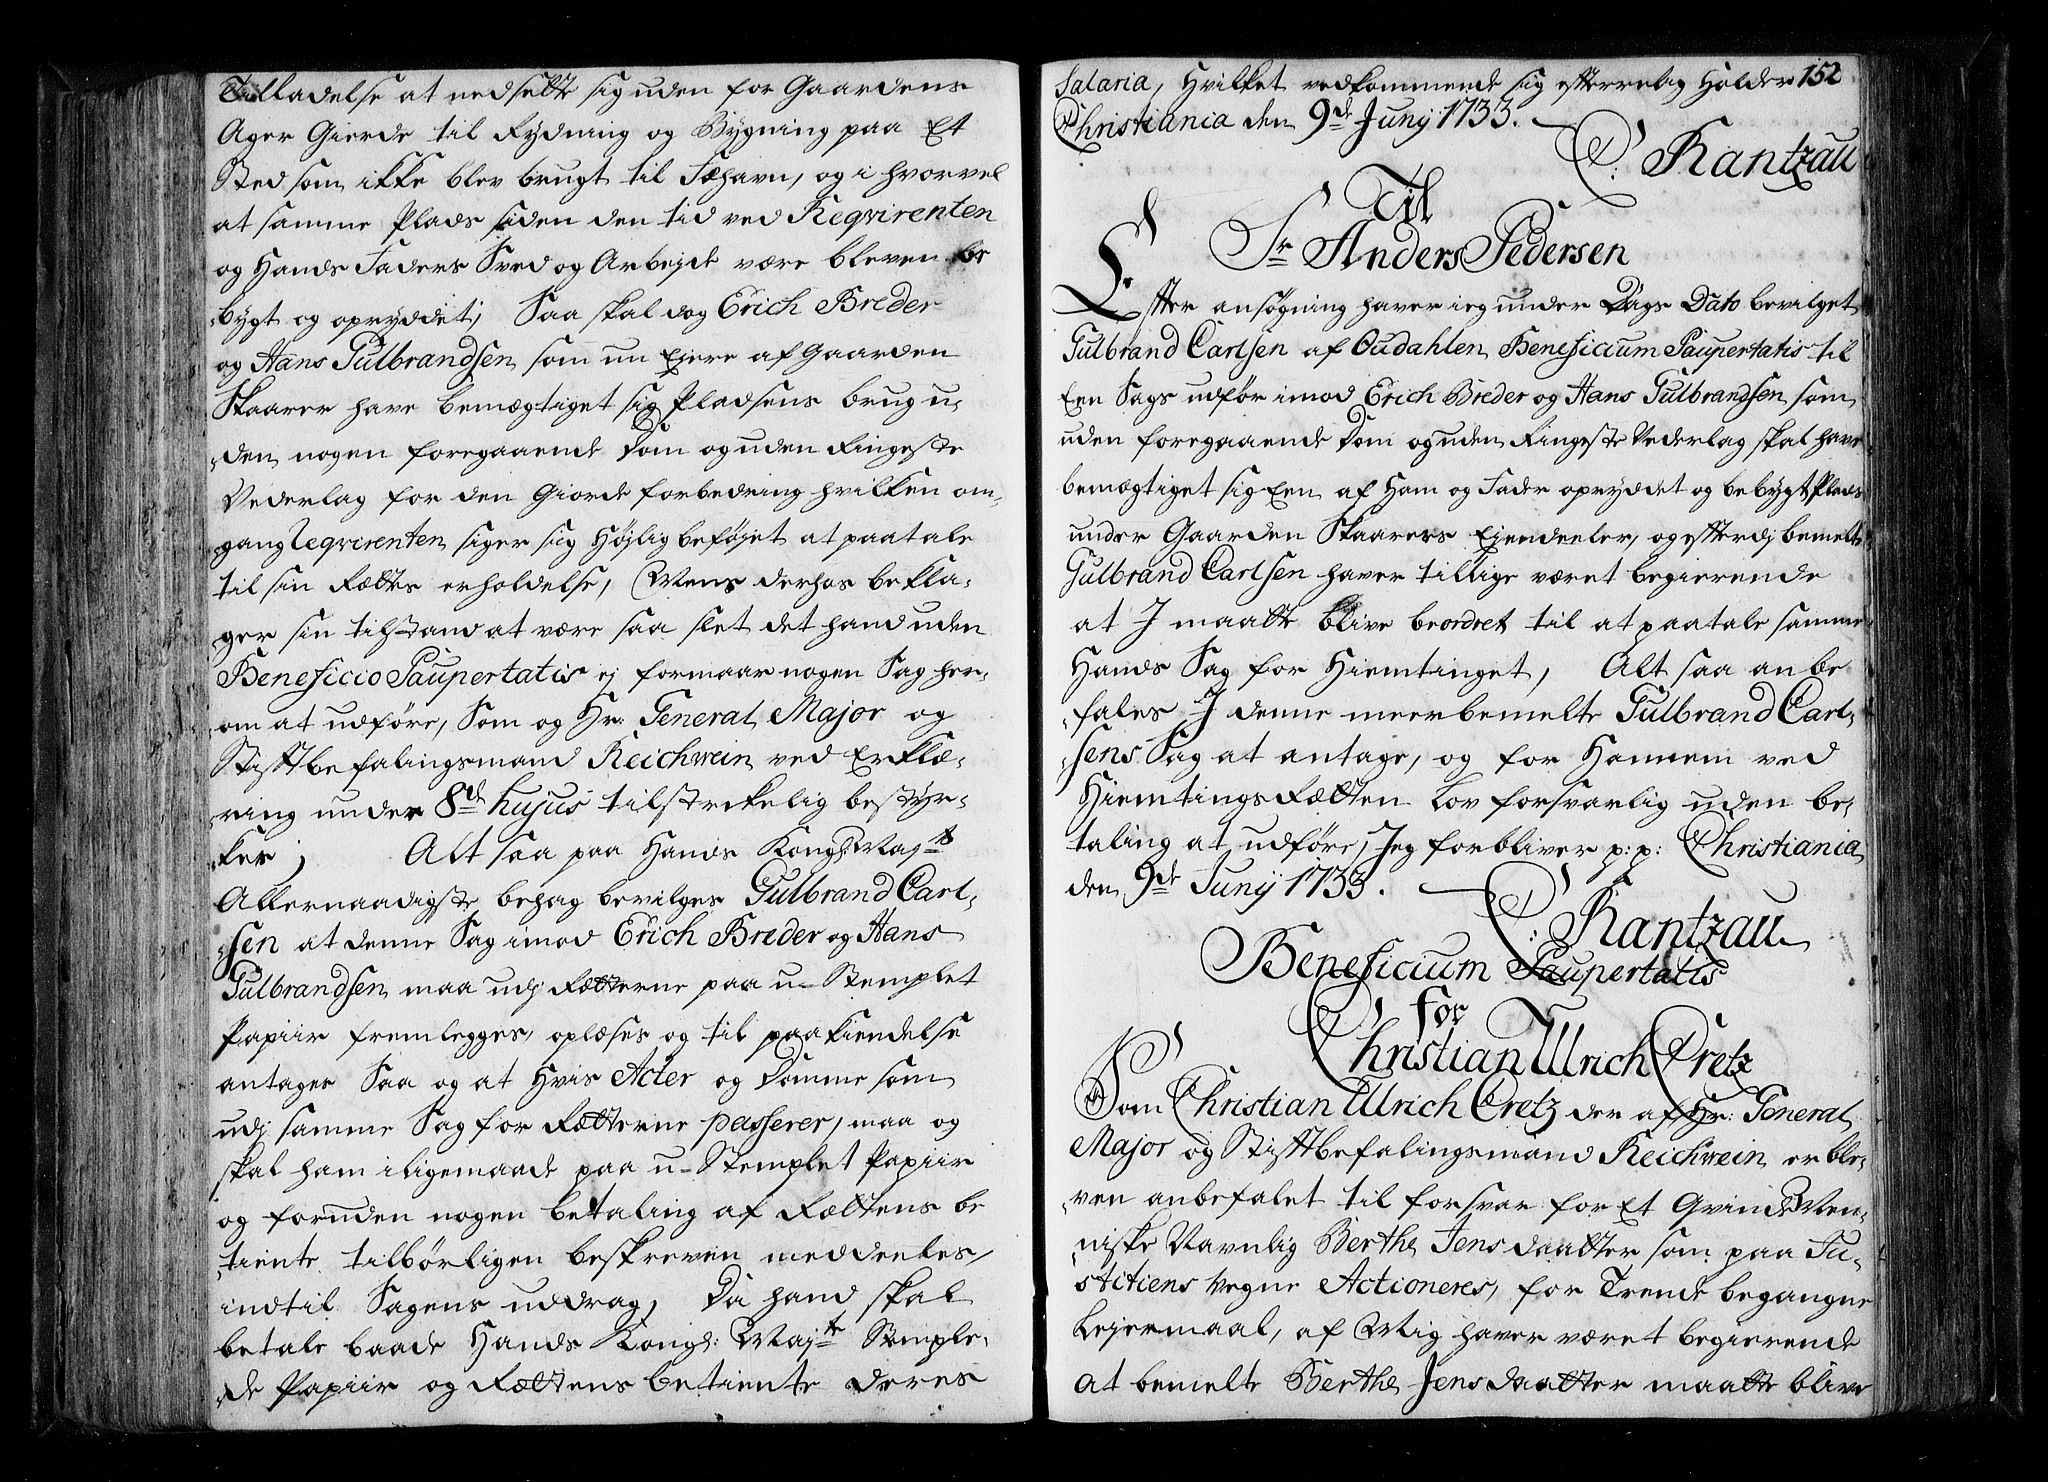 Tilladelse at nedsette sig uden for Gaardens
Ager Gierde til Rydning og Bygning paa Et
Sted som ikke blev brugt til Fæhavn, og i hvorvel
at samme Plads siden den tid ved Reqvirenten
og Hands Faders Sved og Arbejde være bleven be
bygt og opryddet; Saa skal dog Erich Breder
og Hans Gulbrandsen som nu Ejere af Gaarden
Skaarer have bemægtiget sig Pladsens brug u-
den nogen foregaaende Dom og uden Ringeste
Vederlag for den Giorde forbedring hvilken om-
gang Reqvirenten siger sig Højlig beføjet at paatale
til sin Rettes erholdelse, Mens derhos bekla-
ger sin tilstand at være saa slet det hand uden
Beneficio Paupertatis ej formaar nogen Sag her-
om at udføre, Som og Hr: General Major og
Stiftbefalingsmand Reichwein ved Erklæ-
ring under 8de hujus tilstrekelig bestyr-
ker; Alt saa paa Hands Kongl: Majts
Allernaadigste behag bevilges Gulbrand Carl-
sen at denne Sag imod Erich Breder og Hans
Gulbrandsen maa udj Rætterne paa u-Stemplet
Papiir fremlegges, oplæses og til paakiendelse
antages Saa og at Hvis Acter og Domme som
udj samme Sag for Rætterne passerer, maa og
skal ham i ligemaade paa u-Stemplet Papiir
og foruden nogen betaling af Rættens be
tiente tilbørligen beskreven meddeeles,
indtil Sagens uddrag, Da hand skal
betale baade Hands Kongl: Majts Stemple-
de Papiir og Rættens betiente deres
Salaria, Hvilket vedkommende sig efterretlig Holder 152
Christiania den 9de Junij 1733.
C: Rantzau
Til
Sr Anders Pedersen
Efter ansøgning haver ieg under Dags Dato bevilget
Gulbrand Carlsen af Oudahlen Beneficium Paupertatis til
Een Sags udfør imod Erich Breder og Hans Gulbrandsen som
uden foregaaende Dom og uden Ringeste Vederlag skal have
bemægtiget sig Een af Ham og Fader opryddet og bebygt Plads
under Gaarden Skaarers Ejendeeler, og efterdj bemelte
Gulbrand Carlsen haver tillige været begierende
at I maatte blive beordret til at paatale samme
Hands Sag for Hiemtinget, Alt saa anbe
fales I denne meerbemelte Gulbrand Carl-
sens Sag at antage, og for Hannem ved
Hiemtings Rætten Lov forsvarlig uden be-
taling at udføre, Jeg forbliver p: p: Christiania
den 9de Junij 1733.
C: Rantzau
Beneficium Paupertatis
for
Christian Ulrich Cretz
Som Christian Ulrich Cretz der af Hr: General
Major og Stiftbefalingsmand Reichwein er ble-
ven anbefalet til forsvar for Et Qvinde Men-
niske Navnlig Berthe Jensdaatter som paa Ju-
stitiens Vegne Actioneres, for Trende begangne
Lejermaal, af Mig haver været begierende
at bemelte Berthe Jensdaatter maatte blive